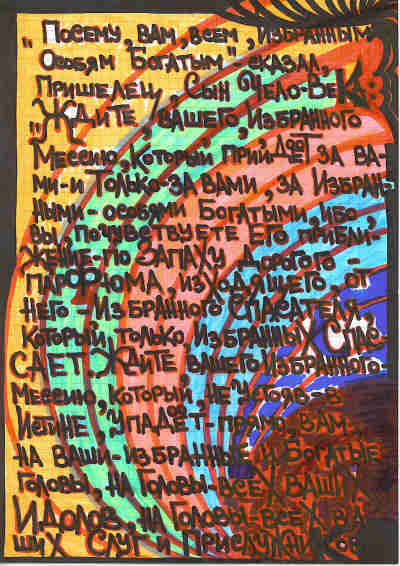 „ Посему, вам, всем, избранным
Особям Богатым" - сказал,
Пришелец, Сын Чело-Века
„Ждите, вашего, Избранного
Мессию, который придёт за ва-
ми - и только - за вами, за Избран-
ными - особями Богатыми, ибо,
вы, почувствуете Его прибли-
жение - по Запаху дорогого -
парфюма, исходящего, от
него - Избранного Спасателя,
который, только, Избранных Спа-
сает. Ждите вашего Избранного -
Мессию, который, не устояв - в
Истине, упадёт - прямо, вам -
на ваши - избранные и Богатые
головы, на головы - всех ваших
Идолов, на головы - всех ва-
ших слуг и прислужников